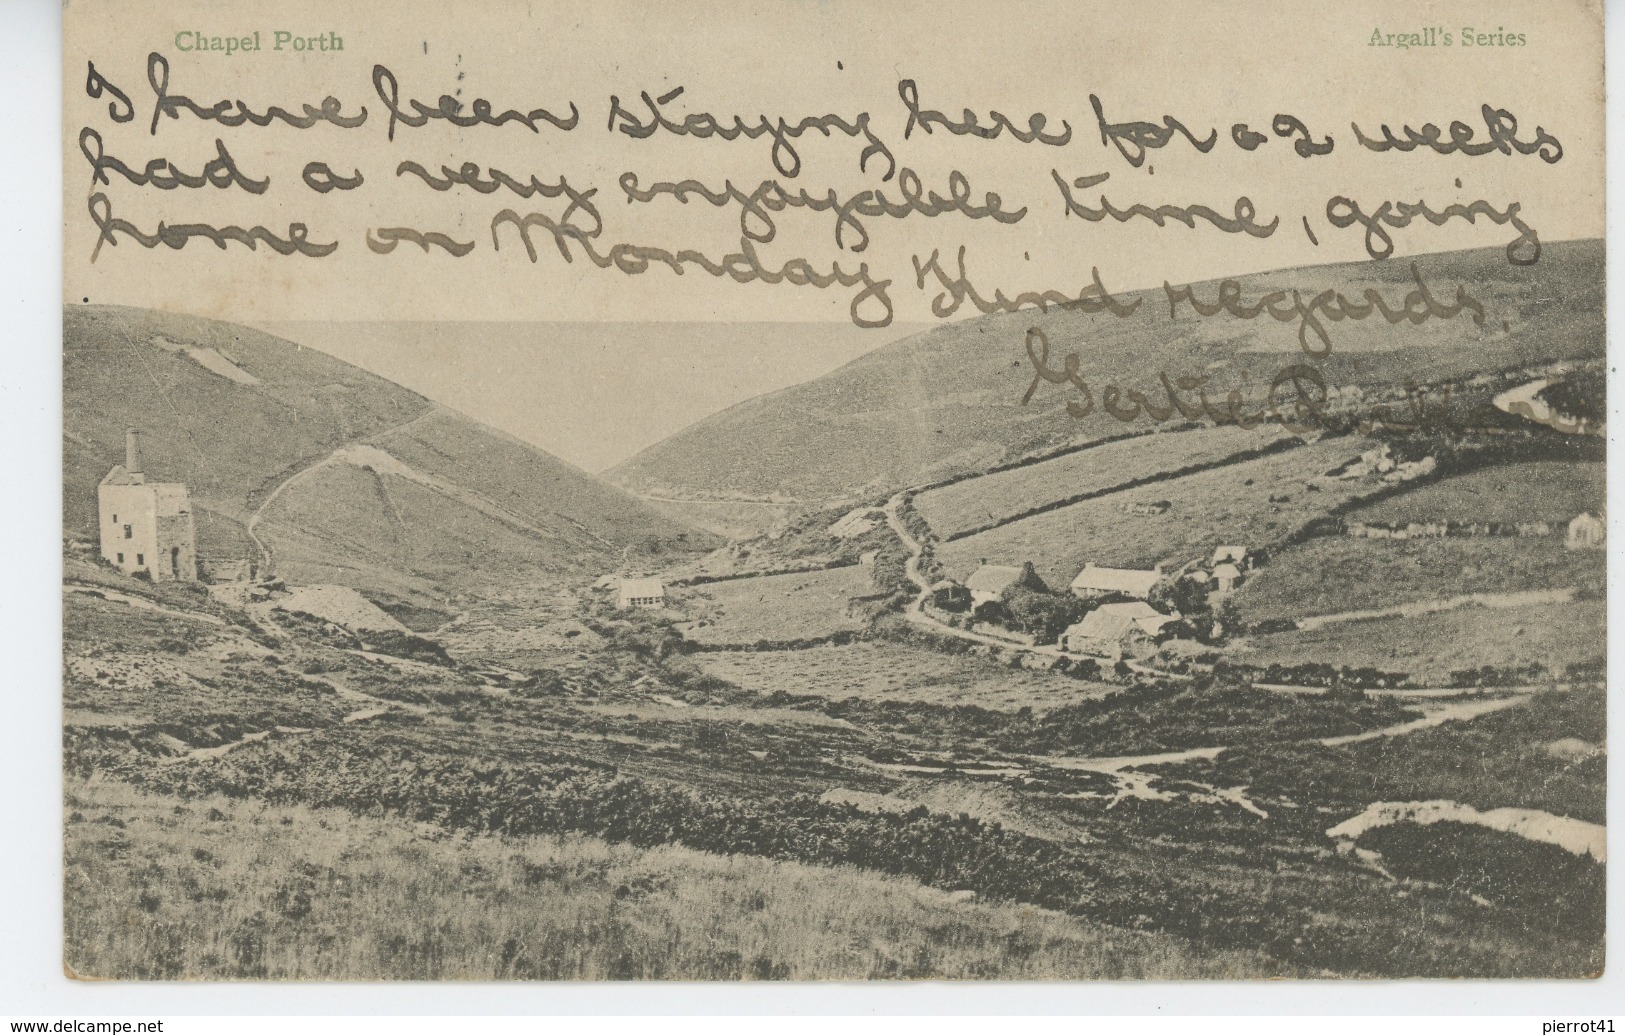 Chapel Porth
Argall's Series
I have been staying here for a 2 weeks
had a very enjoyable time, going
home on Monday Kind regards,
Gertie
www.delcampe.net
pierrot41